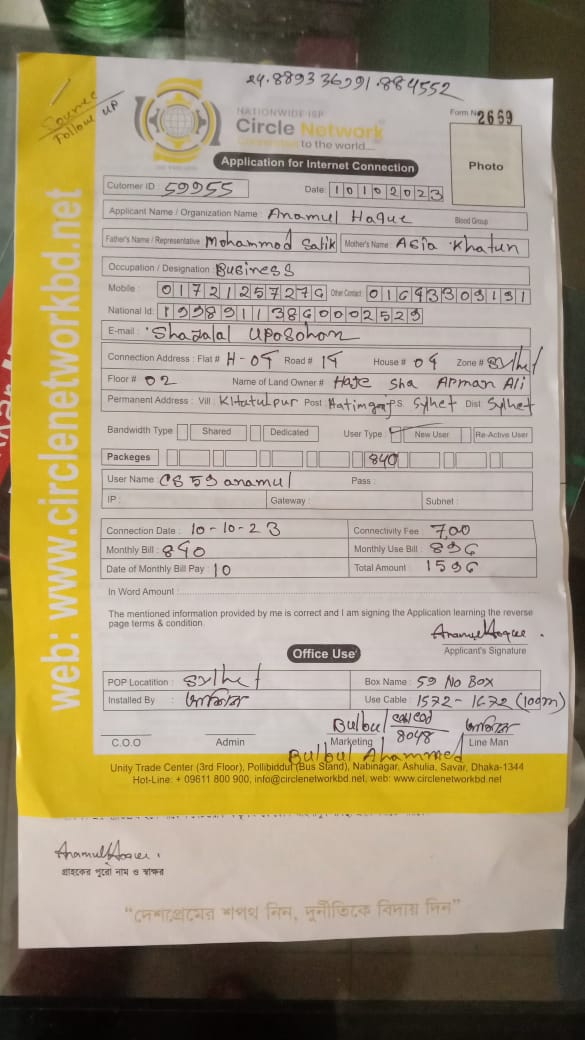 24.889336991.884552
Source
Follow UP
NATIONWIDE ISP
Circle Network
Connected to the world....
Form No 2669
Photo
Application for Internet Connection
Cutomer ID : 59955
Date: 10102023
Applicant Name / Organization Name : Anamul Haque Blood Group
Father's Name / Representative Mohammod Salik Mother's Name : Asia Khatun
Occupation / Designation Business
Mobile : Other Contact
National Id:
E-mail : Shajalal Uposohon
Connection Address : Flat # H-09 Road # 19 House # 09 Zone # Sylhet
Floor # 02 Name of Land Owner # Haje Sha Arman Ali
Permanent Address : Vill : Khatulpur Post Hatimganj PS Sylhet Dist Sylhet
Bandwidth Type Shared Dedicated User Type : New User Re-Active User
Packeges 840
User Name : CS59 anamul Pass :
IP : Gateway : Subnet :
Connection Date : 10-10-23 Connectivity Fee : 700
Monthly Bill : 890 Monthly Use Bill : 896
Date of Monthly Bill Pay : 10 Total Amount : 1596
In Word Amount :
The mentioned information provided by me is correct and I am signing the Application learning the reverse
page terms & condition.
Anamul Hoque.
Applicant's Signature
Office Use
POP Locatition : Sylhet Box Name : 59 No Box
Installed By : Use Cable : 1572-1672 (100m)
Bulbul 8048
C.O.O Admin Marketing Line Man
Bulbul Ahammed
Unity Trade Center (3rd Floor), Pollibiddut (Bus Stand), Nabinagar, Ashulia, Savar, Dhaka-1344
Hot-Line: + 09611 800 900, info@circlenetworkbd.net, web: www.circlenetworkbd.net
web: www.circlenetworkbd.net
Anamul Hoque.
গ্রাহকের পুরো নাম ও স্বাক্ষর
“দেশপ্রেমের শপথ নিন, দুর্নীতিকে বিদায় দিন”